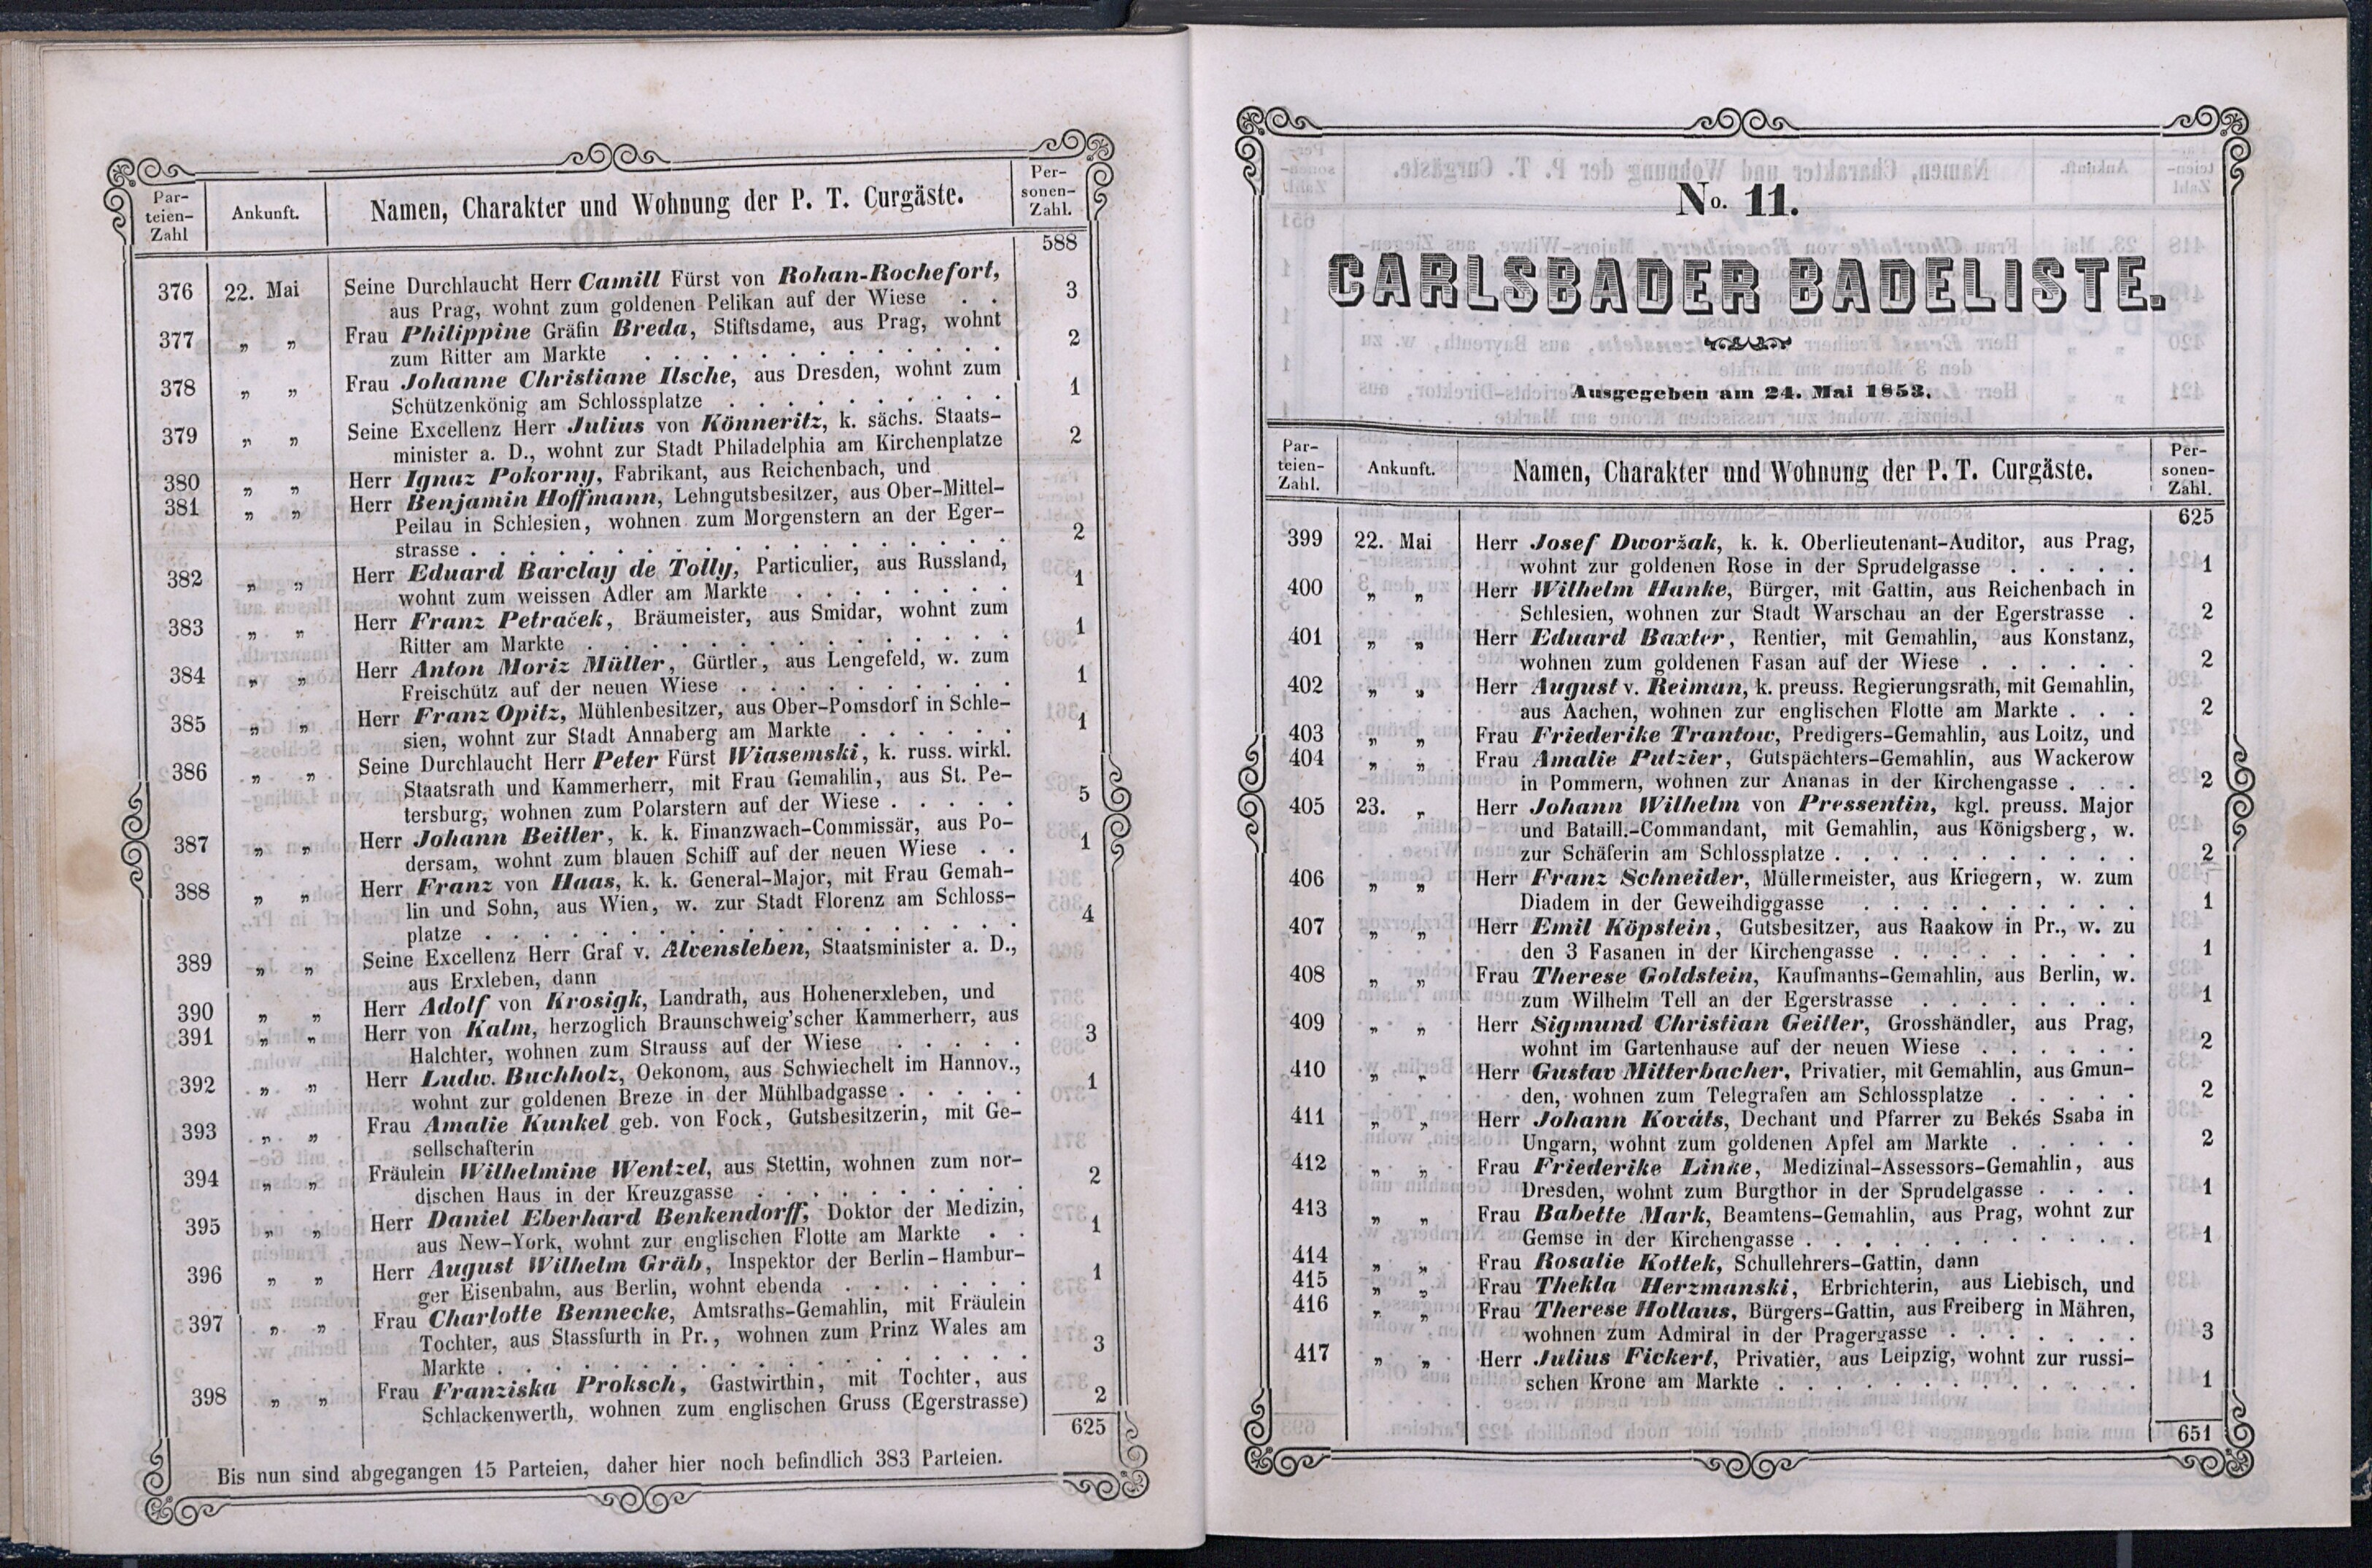 Par-
teien-
Zahl
Ankunft.
Namen, Charakter und Wohnung der P. T. Curgäste.
Per-
sonen-
Zahl.
588
376 22. Mai Seine Durchlaucht Herr Camill Fürst von Rohan-Rochefort,
aus Prag, wohnt zum goldenen Pelikan auf der Wiese . . 3
377 „ „ Frau Philippine Gräfin Breda, Stiftsdame, aus Prag, wohnt
zum Ritter am Markte . . . . . . . . . . . . 2
378 „ „ Frau Johanne Christiane Ilsche, aus Dresden, wohnt zum
Schützenkönig am Schlossplatze . . . . . . . . . . 1
379 „ „ Seine Excellenz Herr Julius von Könneritz, k. sächs. Staats-
minister a. D., wohnt zur Stadt Philadelphia am Kirchenplatze 2
380 „ „ Herr Ignaz Pokorny, Fabrikant, aus Reichenbach, und
381 „ „ Herr Benjamin Hoffmann, Lehngutsbesitzer, aus Ober-Mittel-
Peilau in Schlesien, wohnen zum Morgenstern an der Eger-
strasse . . . . . . . . . . . . . . . . . . 2
382 „ „ Herr Eduard Barclay de Tolly, Particulier, aus Russland,
wohnt zum weissen Adler am Markte . . . . . . . . 1
383 „ „ Herr Franz Petraček, Bräumeister, aus Smidar, wohnt zum
Ritter am Markte . . . . . . . . . . . . . . 1
384 „ „ Herr Anton Moriz Müller, Gürtler, aus Lengefeld, w. zum
Freischütz auf der neuen Wiese . . . . . . . . . . 1
385 „ „ Herr Franz Opitz, Mühlenbesitzer, aus Ober-Pomsdorf in Schle-
sien, wohnt zur Stadt Annaberg am Markte . . . . . . 1
386 „ „ Seine Durchlaucht Herr Peter Fürst Wiasemski, k. russ. wirkl.
Staatsrath und Kammerherr, mit Frau Gemahlin, aus St. Pe-
tersburg, wohnen zum Polarstern auf der Wiese . . . . . 5
387 „ „ Herr Johann Beitler, k. k. Finanzwach-Commissär, aus Po-
dersam, wohnt zum blauen Schiff auf der neuen Wiese . . 1
388 „ „ Herr Franz von Haas, k. k. General-Major, mit Frau Gemah-
lin und Sohn, aus Wien, w. zur Stadt Florenz am Schloss-
platze . . . . . . . . . . . . . . . . . . 4
389 „ „ Seine Excellenz Herr Graf v. Alvensleben, Staatsminister a. D.,
aus Erxleben, dann
390 „ „ Herr Adolf von Krosigk, Landrath, aus Hohenerxleben, und
391 „ „ Herr von Kalm, herzoglich Braunschweig'scher Kammerherr, aus
Halchter, wohnen zum Strauss auf der Wiese . . . . . 3
392 „ „ Herr Ludw. Buchholz, Oekonom, aus Schwiechelt im Hannov.,
wohnt zur goldenen Breze in der Mühlbadgasse . . . . . 1
393 „ „ Frau Amalie Kunkel geb. von Fock, Gutsbesitzerin, mit Ge-
sellschafterin
394 „ „ Fräulein Wilhelmine Wentzel, aus Stettin, wohnen zum nor-
dischen Haus in der Kreuzgasse . . . . . . . . . 2
395 „ „ Herr Daniel Eberhard Benkendorff, Doktor der Medizin,
aus New-York, wohnt zur englischen Flotte am Markte . . 1
396 „ „ Herr August Wilhelm Gräb, Inspektor der Berlin-Hambur-
ger Eisenbahn, aus Berlin, wohnt ebenda . . . . . . . 1
397 „ „ Frau Charlotte Bennecke, Amtsraths-Gemahlin, mit Fräulein
Tochter, aus Stassfurth in Pr., wohnen zum Prinz Wales am
Markte . . . . . . . . . . . . . . . . . . 3
398 „ „ Frau Franziska Proksch, Gastwirthin, mit Tochter, aus
Schlackenwerth, wohnen zum englischen Gruss (Egerstrasse) 2
625
Bis nun sind abgegangen 15 Parteien, daher hier noch befindlich 383 Parteien.
No. 11.
CARLSBADER BADELISTE.
Ausgegeben am 24. Mai 1853.
Par-
teien-
Zahl.
Ankunft.
Namen, Charakter und Wohnung der P. T. Curgäste.
Per-
sonen-
Zahl.
625
399 22. Mai Herr Josef Dworžak, k. k. Oberlieutenant-Auditor, aus Prag,
wohnt zur goldenen Rose in der Sprudelgasse . . . . . 1
400 „ „ Herr Wilhelm Hanke, Bürger, mit Gattin, aus Reichenbach in
Schlesien, wohnen zur Stadt Warschau an der Egerstrasse . 2
401 „ „ Herr Eduard Baxter, Rentier, mit Gemahlin, aus Konstanz,
wohnen zum goldenen Fasan auf der Wiese . . . . . . 2
402 „ „ Herr August v. Reiman, k. preuss. Regierungsrath, mit Gemahlin,
aus Aachen, wohnen zur englischen Flotte am Markte . . . 2
403 „ „ Frau Friederike Trantow, Predigers-Gemahlin, aus Loitz, und
404 „ „ Frau Amalie Putzier, Gutspächters-Gemahlin, aus Wackerow
in Pommern, wohnen zur Ananas in der Kirchengasse . . . 2
405 23. „ Herr Johann Wilhelm von Pressentin, kgl. preuss. Major
und Bataill.-Commandant, mit Gemahlin, aus Königsberg, w.
zur Schäferin am Schlossplatze . . . . . . . . . . . 2
406 „ „ Herr Franz Schneider, Müllermeister, aus Kriegern, w. zum
Diadem in der Geweihdiggasse . . . . . . . . . . 1
407 „ „ Herr Emil Köpstein, Gutsbesitzer, aus Raakow in Pr., w. zu
den 3 Fasanen in der Kirchengasse . . . . . . . . . 1
408 „ „ Frau Therese Goldstein, Kaufmanns-Gemahlin, aus Berlin, w.
zum Wilhelm Tell an der Egerstrasse . . . . . . . . 1
409 „ „ Herr Sigmund Christian Geitler, Grosshändler, aus Prag,
wohnt im Gartenhause auf der neuen Wiese . . . . . . 2
410 „ „ Herr Gustav Mitterbacher, Privatier, mit Gemahlin, aus Gmun-
den, wohnen zum Telegrafen am Schlossplatze . . . . . 2
411 „ „ Herr Johann Kováts, Dechant und Pfarrer zu Bekés Ssaba in
Ungarn, wohnt zum goldenen Apfel am Markte . . . . . 2
412 „ „ Frau Friederike Linke, Medizinal-Assessors-Gemahlin, aus
Dresden, wohnt zum Burgthor in der Sprudelgasse . . . . 1
413 „ „ Frau Babette Mark, Beamtens-Gemahlin, aus Prag, wohnt zur
Gemse in der Kirchengasse . . . . . . . . . . . . 1
414 „ „ Frau Rosalie Kottek, Schullehrers-Gattin, dann
415 „ „ Frau Thekla Herzmanski, Erbrichterin, aus Liebisch, und
416 „ „ Frau Therese Hollaus, Bürgers-Gattin, aus Freiberg in Mähren,
wohnen zum Admiral in der Pragergasse . . . . . . . 3
417 „ „ Herr Julius Fickert, Privatier, aus Leipzig, wohnt zur russi-
schen Krone am Markte . . . . . . . . . . . . . 1
651